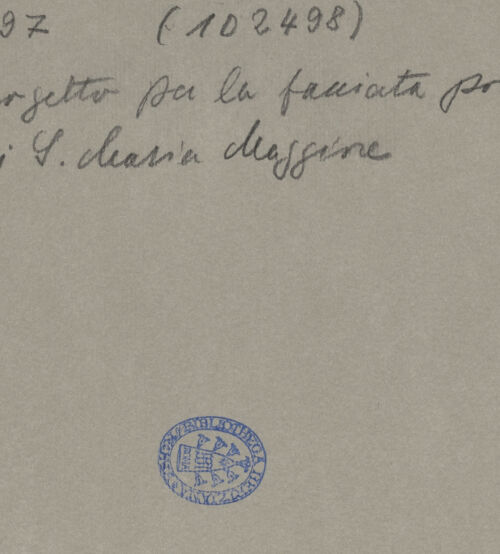 97 (102498)
ogetto per la facciata po
i S. Maria Maggiore
BIBLIOTHECA